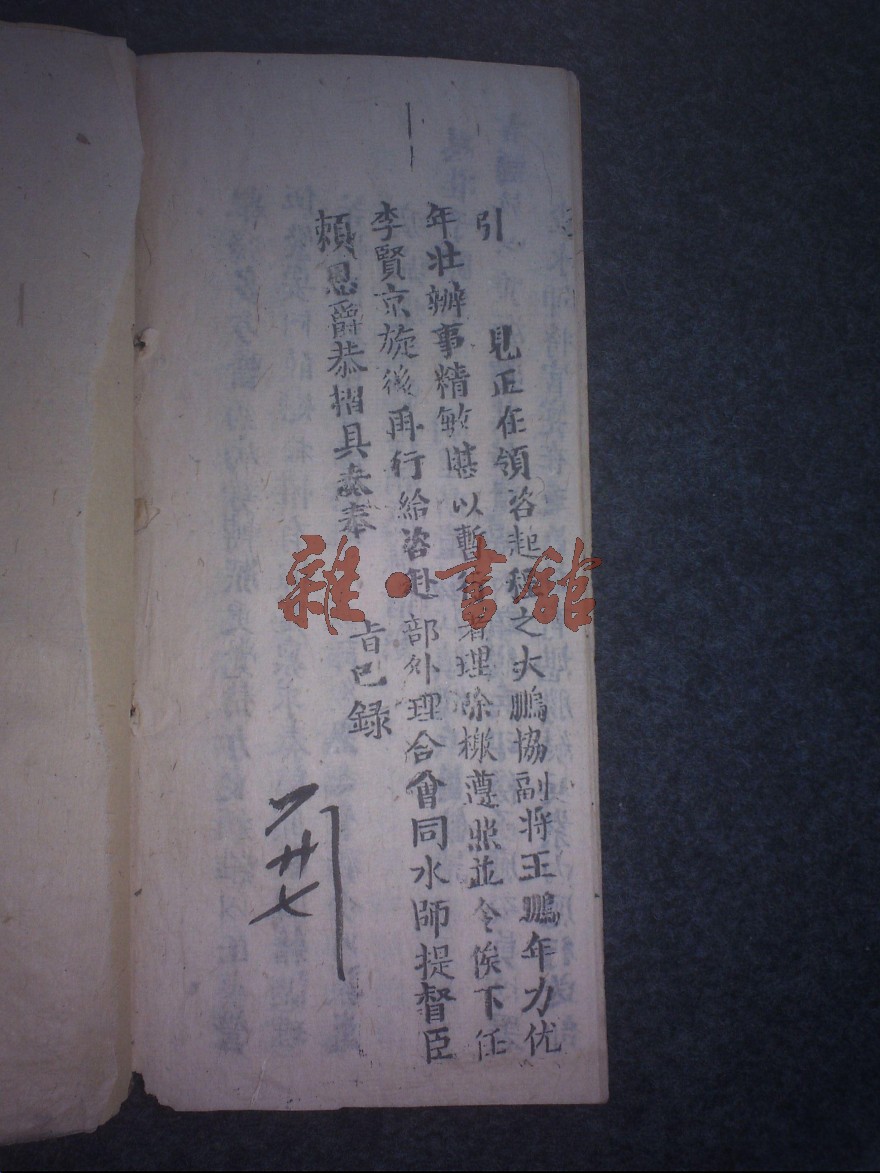 引 見正在領咨起程之大鵬協副將王鵬年力优
年壯辦事精敏堪以暫行署理除檄遵照並令俟下任
李賢京旋後再行給咨赴 部外理合會同水師提督臣
賴恩爵恭招具奏奉 旨已錄
廿七
雜·書館